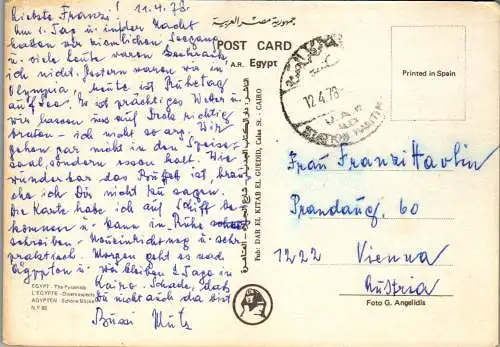 Liebste Franzi! 11.4.78.
Am 1. Tag u. in der Nacht
haben wir ziemlichen Seegang
u. viele Leute waren Seekrank
ich nicht. Gestern waren wir in
Olympia, heute ist Ruhetag
auf See. Es ist prächtiges Wetter u.
wir lassen uns auf Deck richtig
braten - ich nicht so arg. Wir
gehen gar nicht in den Speise-
saal, sondern essen kalt. Wie
wunderbar das Büffet ist, brau-
che ich Dir nicht zu sagen.
Die Karte habe ich auf Schiff be-
kommen u. kann in Ruhe
schreiben - u. sehr
praktisch. Morgen geht es nach
Egypten u. wir bleiben 2 Tage in
Kairo. Schade, daß
Du nicht auch da bist
Bussi Mutz
EGYPT - The Pyramids
L'EGYPTE -
ÄGYPTEN
جمهورية مصر العربية
POST CARD
A.R. Egypt
Pub: DAR EL KITAB EL GUEDID, Cairo
12.4.78
Printed in Spain
Frau Franzi Havlin
Prandaug. 60
1222 Vienna
Austria
Foto G. Angelidis